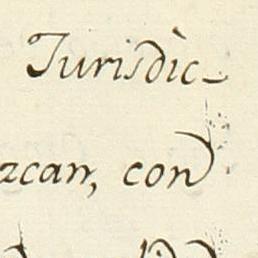 Jurisdic-
zcan, con